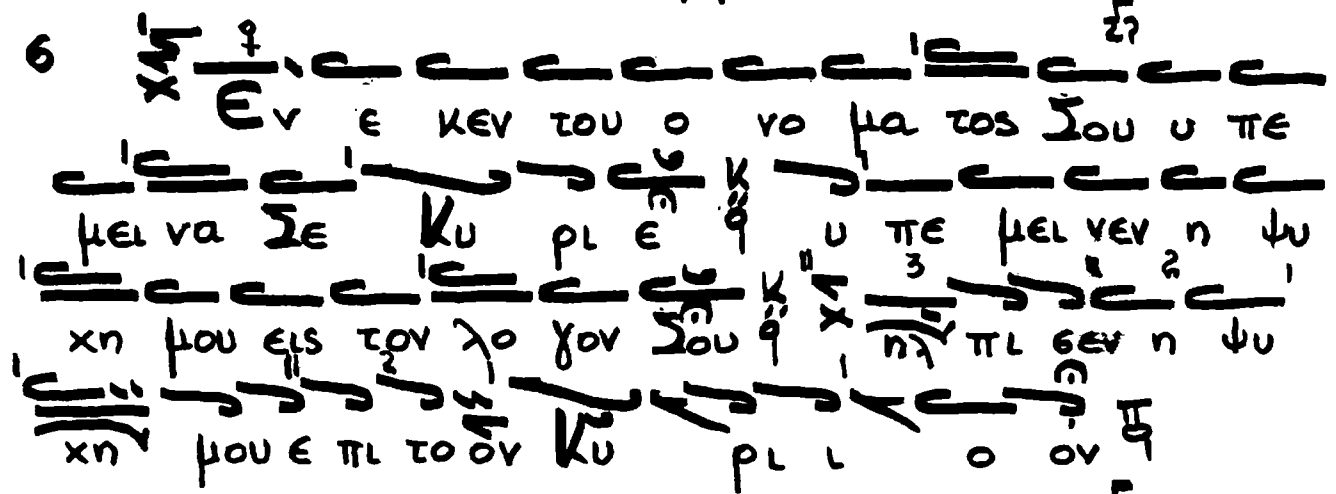 6 Εν ε κεν του ο νο μα τος Σου υ πε
μει να Σε Κυ ρι ε υ πε μει νεν η ψυ
χη μου εις τον λο γον Σου ηλ πι σεν η ψυ
χη μου ε πι το ον Κυ ρι ι ο ον